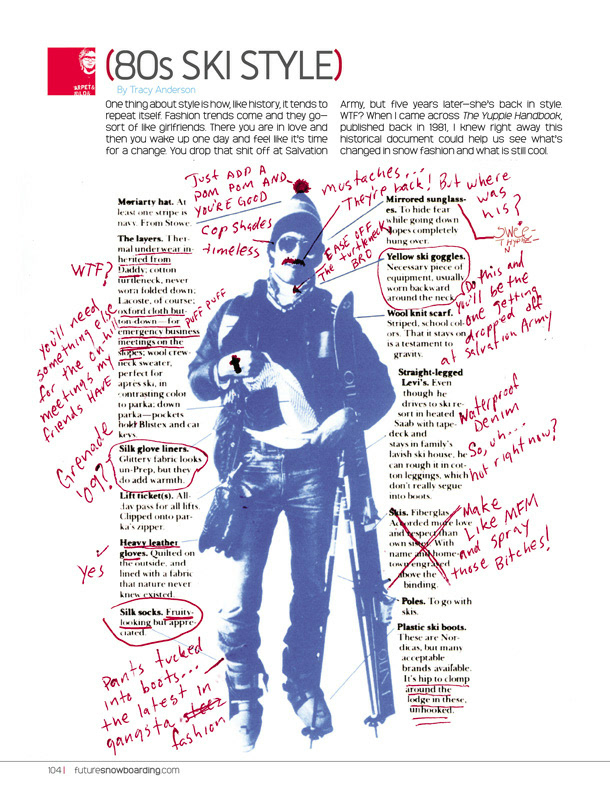 (80s SKI STYLE)
By Tracy Anderson
One thing about style is how, like history, it tends to
repeat itself. Fashion trends come and they go—
sort of like girlfriends. There you are in love and
then you wake up one day and feel like it's time
for a change. You drop that shit off at Salvation
Army, but five years later—she's back in style.
WTF? When I came across The Yuppie Handbook,
published back in 1981, I knew right away this
historical document could help us see what's
changed in snow fashion and what is still cool.
Just ADD A
POM POM AND
YOU'RE GOOD
Mustaches...
They're back! But where
was
his?
Cop Shades
timeless
EASE OFF
The turtleneck
BRO
Moriarty hat. At
least one stripe is
navy. From Stowe.
The layers. Ther-
mal underwear in-
herited from
Daddy; cotton
turtleneck, never
worn folded down;
Lacoste, of course;
oxford cloth but-
ton-down—for
emergency business
meetings on the
slopes; wool crew-
neck sweater,
perfect for
après ski, in
contrasting color
to parka; down
parka—pockets
hold Blistex and car
keys.
Silk glove liners.
Glittery fabric looks
un-Prep, but they
do add warmth.
Lift ticket(s). All-
day pass for all lifts.
Clipped onto par-
ka's zipper.
Heavy leather
gloves. Quilted on
the outside, and
lined with a fabric
that nature never
knew existed.
Silk socks. Fruity-
looking but appre-
ciated.
WTF?
you'll need
something else
for the on hill
meetings my
friends HAVE
PUFF PUFF
Grenade
'09??
yes
Pants tucked
into boots...
the latest in
gangsta steez
fashion
Mirrored sunglass-
es. To hide tear
while going down
slopes completely
hung over.
Yellow ski goggles.
Necessary piece of
equipment, usually
worn backward
around the neck.
Wool knit scarf.
Striped, school col-
ors. That it stays on
is a testament to
gravity.
Straight-legged
Levi's. Even
though he
drives to ski re-
sort in heated
Saab with tape-
deck and
stays in family's
lavish ski house, he
can rough it in cot-
ton leggings, which
don't really segue
into boots.
Skis. Fiberglas.
Accorded more love
and respect than
own sister. With
name and home-
town engraved
above the
binding.
Poles. To go with
skis.
Plastic ski boots.
These are Nor-
dicas, but many
acceptable
brands available.
It's hip to clomp
around the
lodge in these,
unhooked.
Do this and
you'll be the
one getting
dropped off
at Salvation Army
Waterproof
Denim
So, uh...
hot right now?
Make
Like MFM
and spray
those Bitches!
104 | futuresnowboarding.com